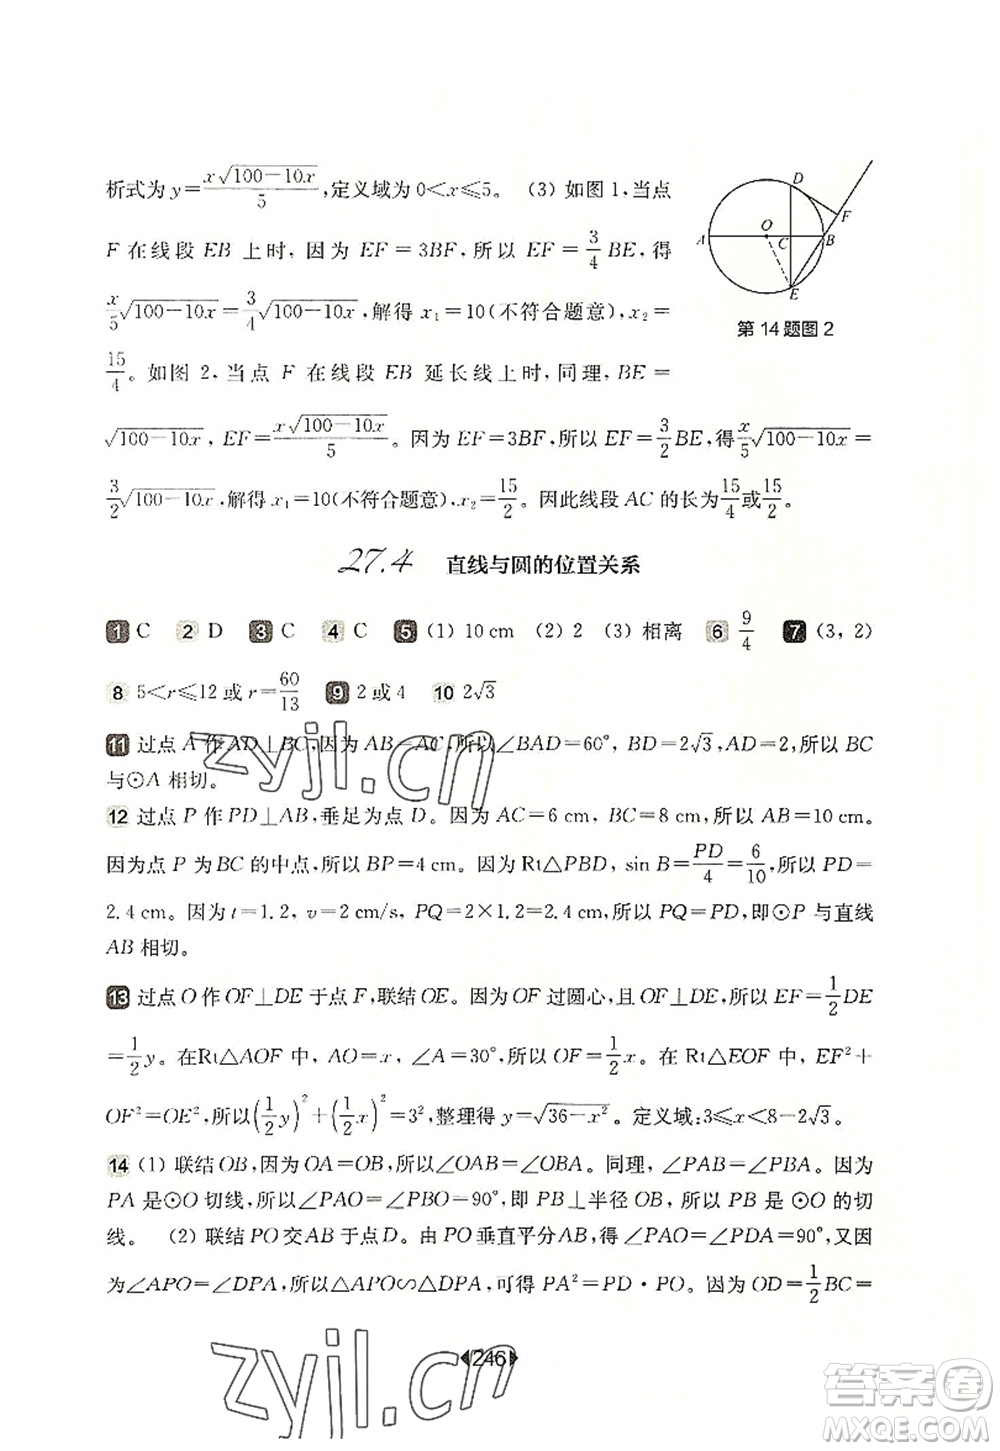 析式为 y=x√(100-10x)/5,定义域为 0<x≤5。 (3) 如图 1,当点
F 在线段 EB 上时,因为 EF=3BF,所以 EF=3/4 BE,得
x/5 √(100-10x)=3/4 √(100-10x),解得 x₁=10(不符合题意),x₂=
15/4。如图 2,当点 F 在线段 EB 延长线上时,同理,BE=
√(100-10x),EF=x√(100-10x)/5。因为 EF=3BF,所以 EF=3/2 BE,得 x/5 √(100-10x)=
3/2 √(100-10x),解得 x₁=10(不符合题意),x₂=15/2。因此线段 AC 的长为 15/4 或 15/2。
D
F
O
A
C
B
E
第 14 题图 2
27.4 直线与圆的位置关系
1 C 2 D 3 C 4 C 5 (1) 10 cm (2) 2 (3) 相离 6 9/4 7 (3, 2)
8 5<r≤12 或 r=60/13 9 2 或 4 10 2√3
11 过点 A 作 AD⊥BC,因为 AB=AC,所以∠BAD=60°,BD=2√3,AD=2,所以 BC
与⊙A 相切。
12 过点 P 作 PD⊥AB,垂足为点 D。因为 AC=6 cm,BC=8 cm,所以 AB=10 cm。
因为点 P 为 BC 的中点,所以 BP=4 cm。因为 Rt△PBD,sin B=PD/4=6/10,所以 PD=
2.4 cm。因为 t=1.2,v=2 cm/s,PQ=2×1.2=2.4 cm,所以 PQ=PD,即⊙P 与直线
AB 相切。
13 过点 O 作 OF⊥DE 于点 F,联结 OE。因为 OF 过圆心,且 OF⊥DE,所以 EF=1/2 DE
=1/2 y。在Rt△AOF 中,AO=x,∠A=30°,所以 OF=1/2 x。在 Rt△EOF 中,EF²+
OF²=OE²,所以(1/2 y)²+(1/2 x)²=3²,整理得 y=√(36-x²)。定义域:3≤x<8-2√3。
14 (1) 联结 OB,因为 OA=OB,所以∠OAB=∠OBA。同理,∠PAB=∠PBA。因为
PA 是⊙O 切线,所以∠PAO=∠PBO=90°,即 PB⊥半径 OB,所以 PB 是⊙O 的切
线。 (2) 联结 PO 交 AB 于点 D。由 PO 垂直平分 AB,得∠APO=∠PDA=90°,又因
为∠APO=∠DPA,所以△APO∽△DPA,可得 PA²=PD·PO。因为 OD=1/2 BC=
246
zyjl.cn
zyjl.cn
答案圈
MXQE.COM